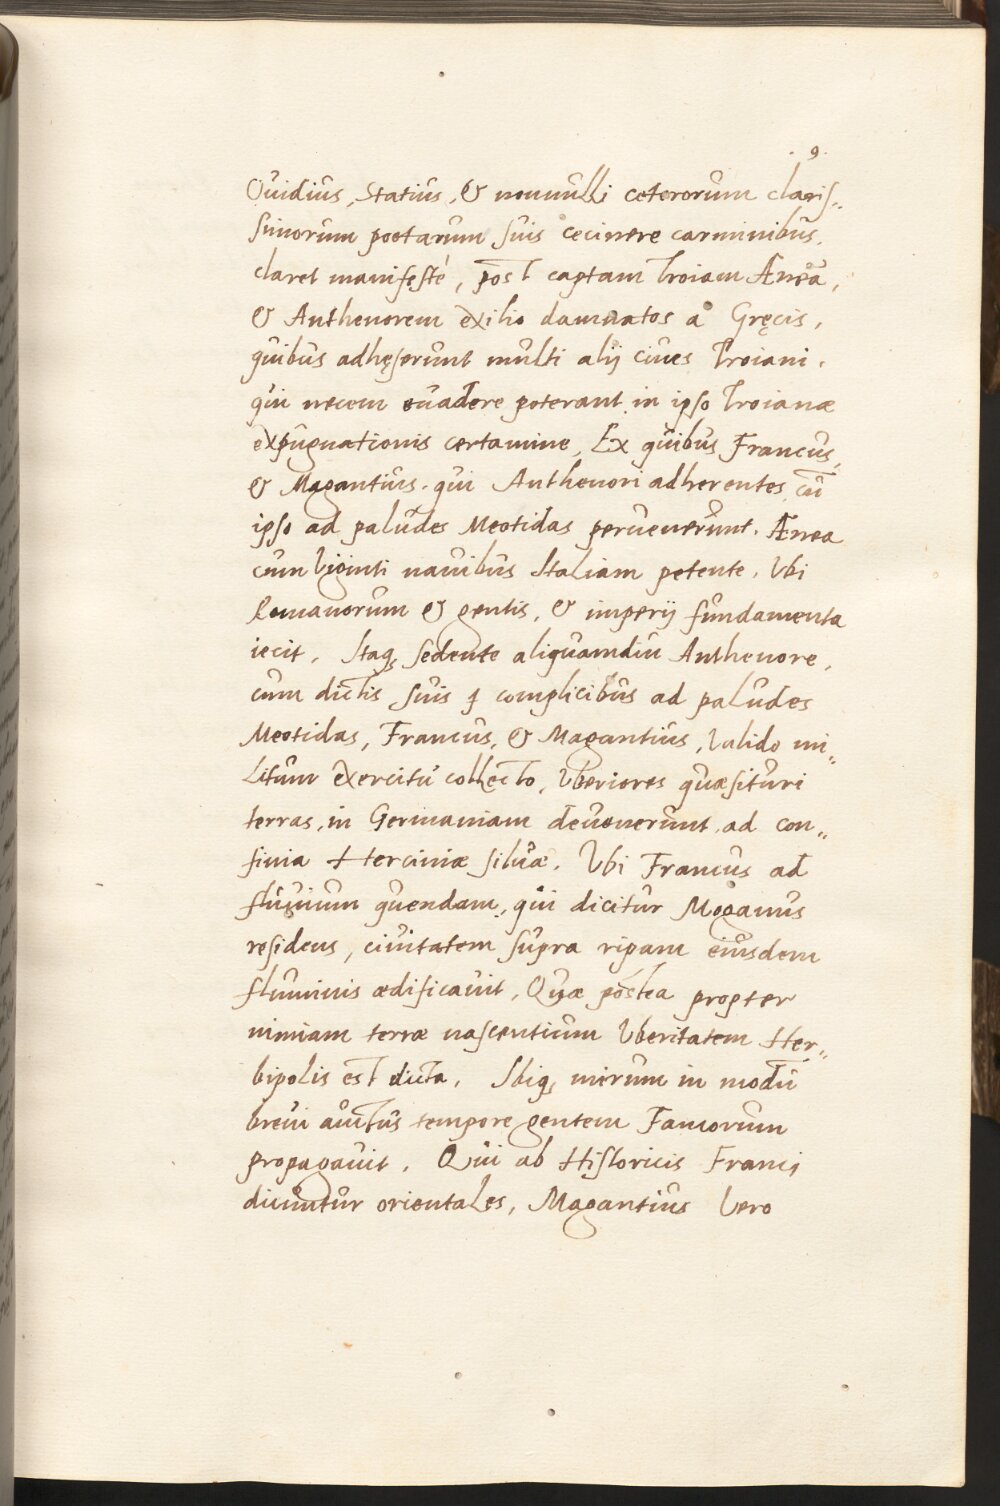 9
Ouidius, Statius, & nonnulli ceterorum claris„
simorum poetarum suis cecinere carminibus,
claret manifesté, post captam Troiam Æneā,
& Anthenorem exilio damnatos à Gręcis,
quibus adhęserunt multi alij ciues Troiani,
qui necem euadere poterant in ipso Troianæ
expugnationis certamine, Ex quibus Francus,
& Magantius, qui Anthenori adherentes, cū
ipso ad paludes Meotidas peruenerunt, Ænea
cum viginti nauibus Italiam petente, Vbi
Romanorum & gentis, & imperij fundamenta
iecit, Itaq, sedente aliquamdiu Anthenore,
cum dictis suis q complicibus ad paludes
Meotidas, Francus, & Magantius, valido mi„
litum exercitu collecto, vberiores quæsituri
terras, in Germaniam deuenerunt, ad con„
finia Herciniæ siluæ, Vbi Francus ad
fluuium quendam, qui dicitur Moganus
residens, ciuitatem supra ripam eiusdem
fluminis ædificauit, Quæ postea propter
nimiam terræ nascentium vberitatem Her„
bipolis est dicta, Ibiq, mirum in modū
breui auctus tempore gentem Francorum
propagauit, Qui ab Historicis Franci
dicuntur orientales, Magantius vero